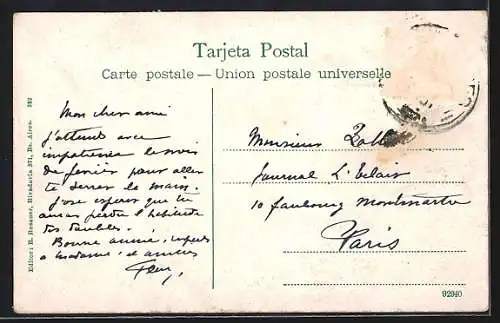 Tarjeta Postal
Carte postale — Union postale universelle
Mon cher ami
j'attends avec
impatience le mois
de février pour aller
te serrer la main.
J'ose espérer que tu
auras perdu l'habitude
des
Bonne année,
à Madame, et amitiés
Monsieur
Journal L'Eclair
10 faubourg Montmartre
Paris
Editor: R. Rosauer, Rivadavia 571, Bs. Aires.
92940